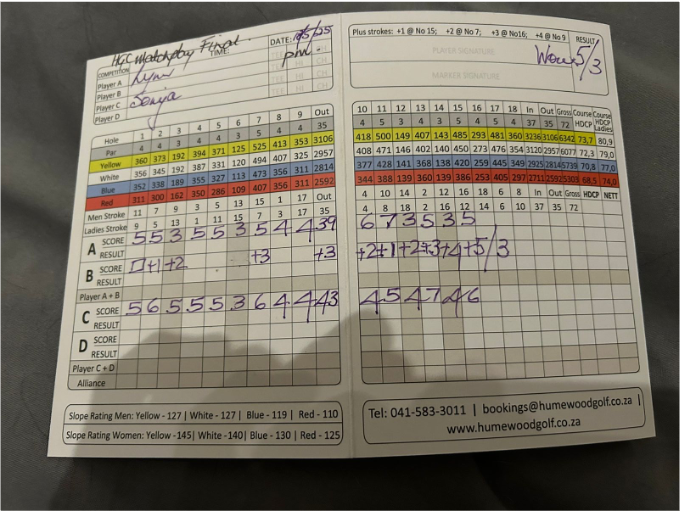 HGC Matchplay Final.
COMPETITION TIME: DATE: 10/5/25
Player A Lynn pm.
Player B
Player C Sonja
Player D
Hole 1 2 3 4 5 6 7 8 9 Out
Par 4 4 3 4 4 3 5 4 4 35
Yellow 360 373 192 394 371 125 525 413 353 3106
White 356 345 192 387 331 120 494 407 325 2957
Blue 352 338 189 355 327 113 473 356 311 2814
Red 311 300 162 350 286 109 407 356 311 2592
Men Stroke 11 7 9 3 5 13 15 1 17 Out
Ladies Stroke 9 5 13 1 11 15 7 3 17 35
A SCORE 5 5 3 5 5 3 5 4 4 39
RESULT
B SCORE □ +1 +2 +3 +3
RESULT
Player A + B
C SCORE 5 6 5 5 5 3 6 4 4 43
RESULT
D SCORE
RESULT
Player C + D
Alliance
Slope Rating Men: Yellow - 127 | White - 127 | Blue - 119 | Red - 110
Slope Rating Women: Yellow -145| White -140| Blue - 130 | Red - 125
Plus strokes: +1 @ No 15; +2 @ No 7; +3 @ No16; +4 @ No 9
RESULT
PLAYER SIGNATURE
5/3
MARKER SIGNATURE
10 11 12 13 14 15 16 17 18 In Out Gross Course HDCP Course HDCP Ladies
4 5 3 4 3 5 4 5 4 37 35 72
418 500 149 407 143 485 293 481 360 3236 3106 6342 73,7 80,9
408 471 146 402 140 450 273 476 354 3120 2957 6077 72,3 79,0
377 428 141 368 138 420 259 445 349 2925 2814 5739 70,8 77,0
344 388 139 360 139 386 253 405 297 2711 2592 5303 68,5 74,0
4 10 14 2 12 16 18 6 8 In Out Gross HDCP NETT
4 8 18 2 16 12 14 6 10 37 35 72
6 7 3 5 3 5
+2 +1 +2 +3 +4 +5/3
4 5 4 7 4 6
Tel: 041-583-3011 | bookings@humewoodgolf.co.za |
www.humewoodgolf.co.za